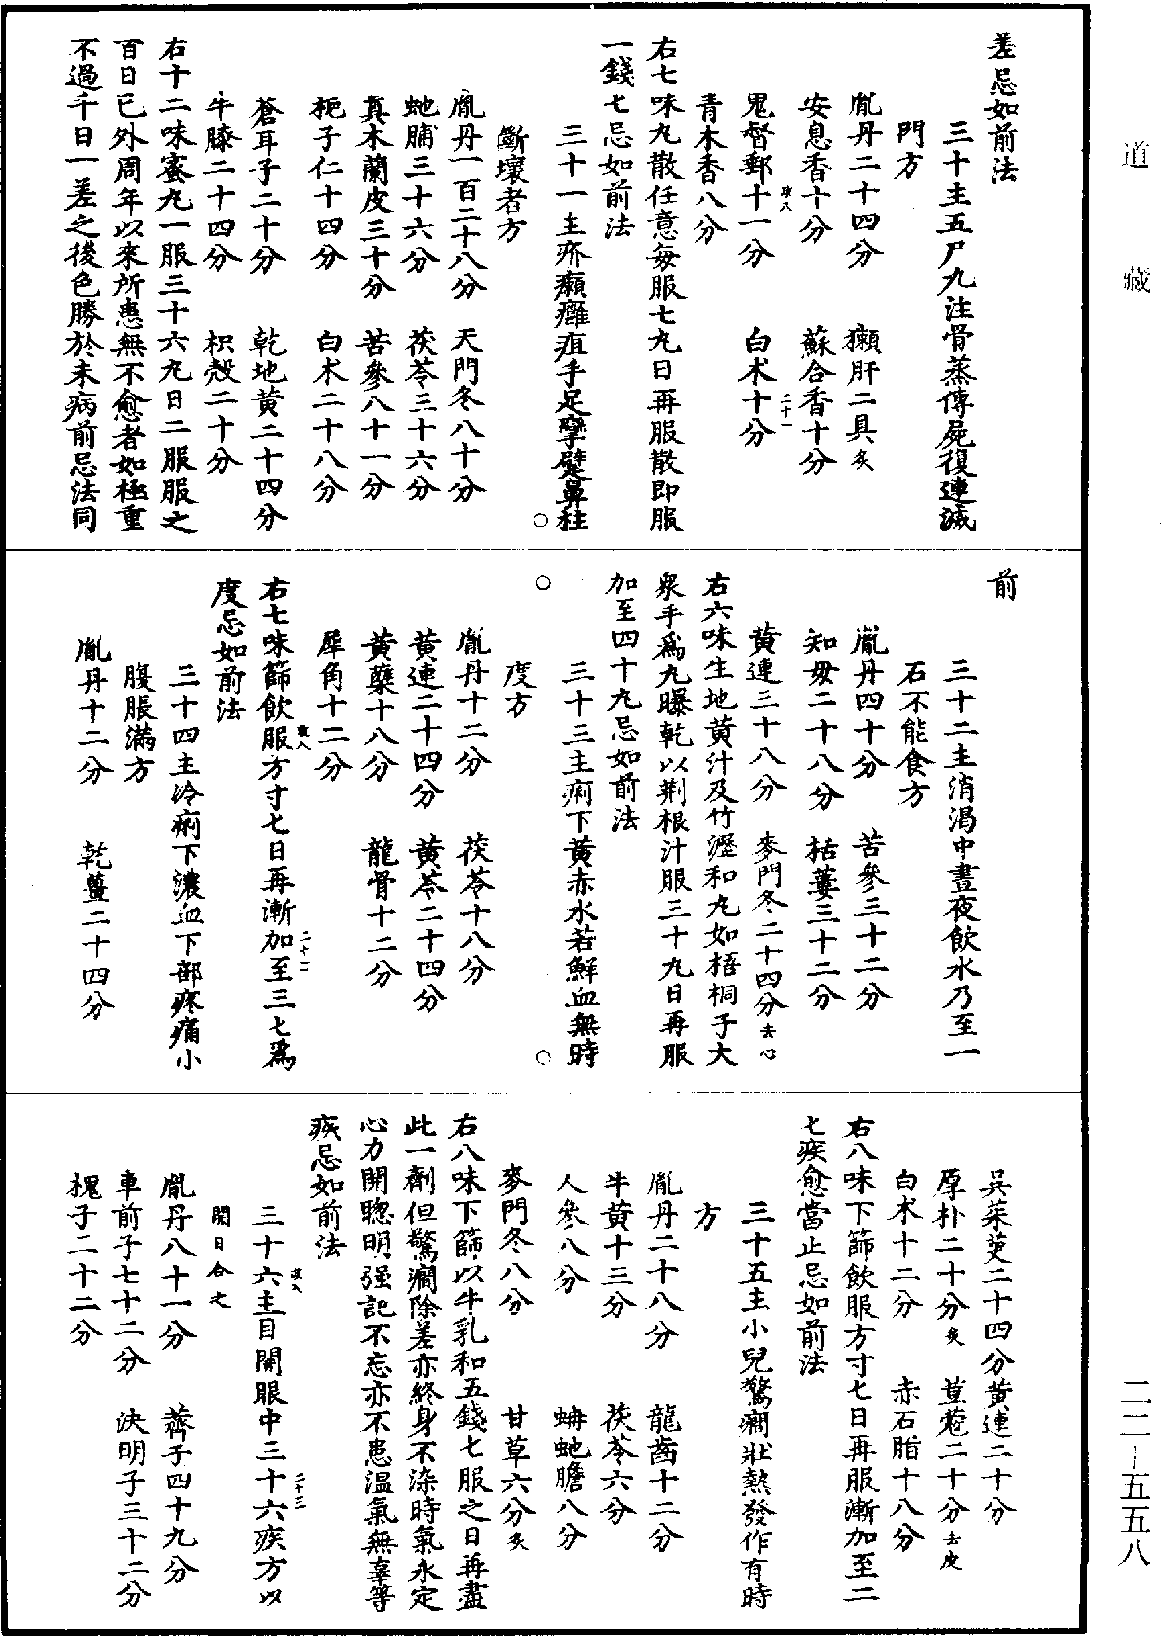 道藏
差忌如前法
三十主五尸九注骨蒸傳屍復連滅
門方
胤丹二十四分　獺肝二具炙
安息香十分　蘇合香十分
鬼督郵十一分　白术十分
青木香八分
右七味丸散任意每服七丸日再服散即服
一錢七忌如前法
三十一主疥癩癰疽手足攣躄鼻柱
斷壞者方
胤丹一百二十八分　天門冬八十分
虵脯三十六分　茯苓三十六分
真木蘭皮三十分　苦參八十一分
梔子仁十四分　白术二十八分
蒼耳子二十分　乾地黃二十四分
牛膝二十四分　枳殼二十分
右十二味蜜丸一服三十六丸日二服服之
百日已外周年以來所患無不愈者如極重
不過千日一差之後色勝於未病前忌法同
前
三十二主消渴中晝夜飲水乃至一
石不能食方
胤丹四十分　苦參三十二分
知母二十八分　栝蔞三十二分
黃連三十八分　麥門冬二十四分去心
右六味生地黃汁及竹瀝和丸如梧桐子大
衆手爲丸曝乾以荆根汁服三十丸日再服
加至四十丸忌如前法
三十三主痢下黃赤水若鮮血無時
度方
胤丹十二分　茯苓十八分
黃連二十四分　黃芩二十四分
黃蘗十八分　龍骨十二分
犀角十二分
右七味篩飲服方寸七日再漸加至三七爲
度忌如前法
三十四主冷痢下濃血下部疼痛小
腹脹滿方
胤丹十二分　乾薑二十四分
吳茱萸二十四分　黃連二十分
厚朴二十分炙　荳蔻二十分去皮
白术十二分　赤石脂十八分
右八味下篩飲服方寸七日再服漸加至二
七疾愈當止忌如前法
三十五主小兒驚癇壯熱發作有時
方
胤丹二十八分　龍齒十二分
牛黃十三分　茯苓六分
人參八分　蚺虵膽八分
麥門冬八分　甘草六分炙
右八味下篩以牛乳和五錢七服之日再盡
此一劑但驚癇除差亦終身不染時氣永定
心力開聰明强記不忘亦不患温氣無辜等
疾忌如前法
三十六主目開眼中三十六疾方以
開日合之
胤丹八十一分　薺子四十九分
車前子七十二分　決明子三十二分
槐子二十二分
二二—五五八